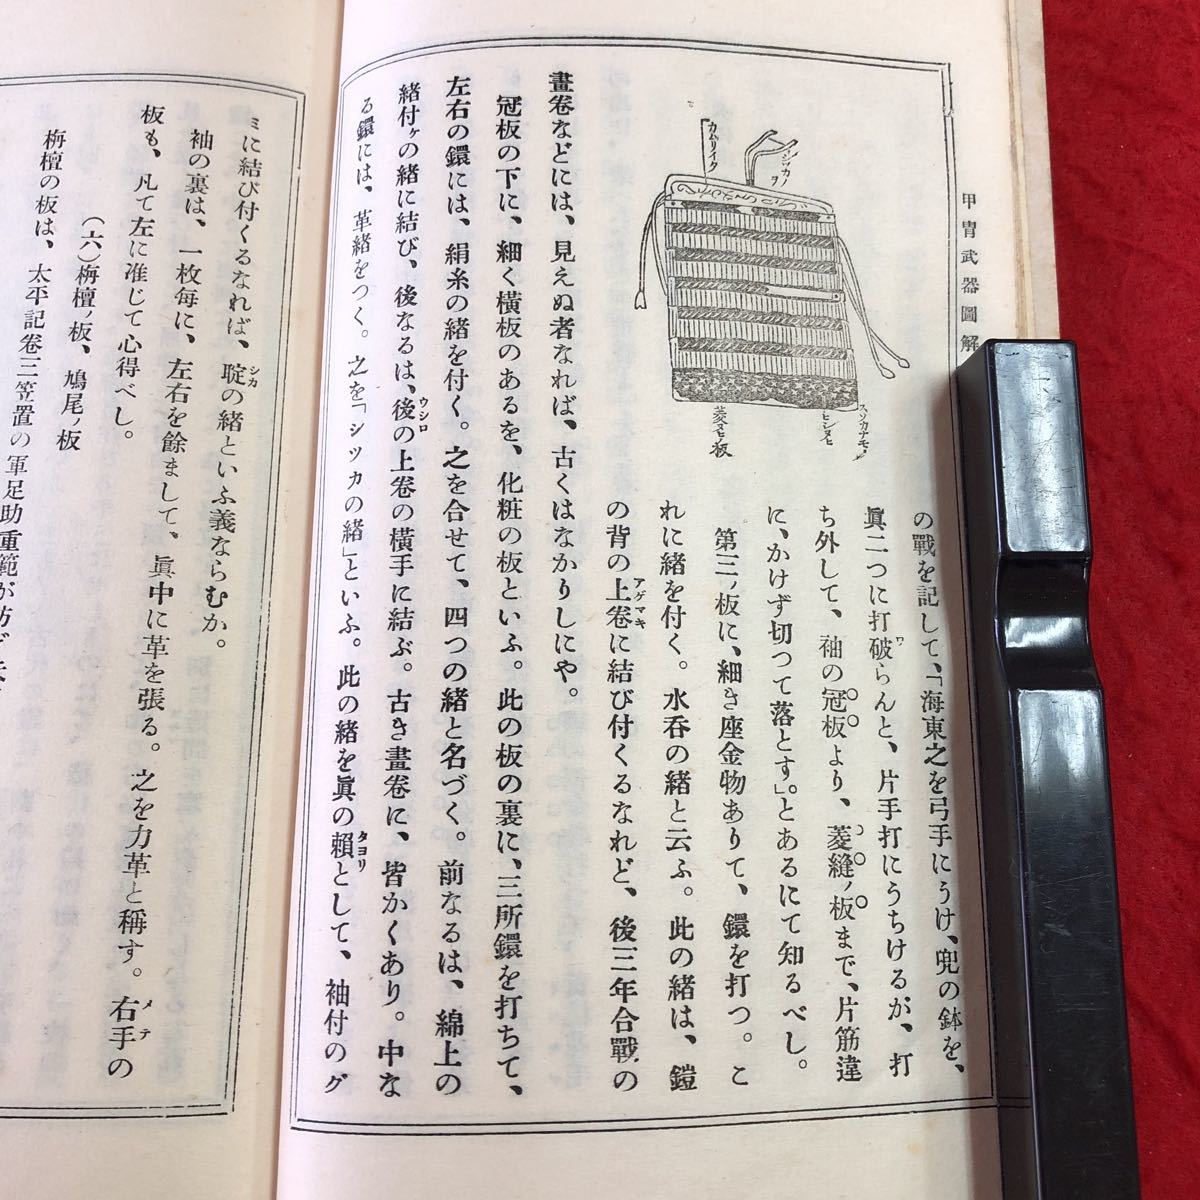 甲冑武器圖解
の戰を記して、「海東之を弓手にうけ、兜の鉢を、
眞二つに打破らんと、片手打にうちけるが、打
ワ
ち外して、袖の冠板より、菱縫ノ板まで、片筋違
に、かけず切つて落とす」。とあるにて知るべし。
第三ノ板に、細き座金物ありて、鐶を打つ。こ
れに緒を付く。水呑の緒と云ふ。此の緒は、鎧
の背の上卷に結び付くるなれど、後三年合戰の
アゲマキ
カムリイタ
シツカノ
ヲ
スソカナモノ
ヒシヌヒ
菱ヌヒノ板
畫卷などには、見えぬ者なれば、古くはなかりしにや。
冠板の下に、細く橫板のあるを、化粧の板といふ。此の板の裏に、三所鐶を打ちて、
左右の鐶には、絹糸の緒を付く。之を合せて、四つの緒と名づく。前なるは、綿上の
緒付ヶの緒に結び、後なるは、後の上卷の橫手に結ぶ。古き畫卷に、皆かくあり。中な
ウシロ
る鐶には、革緒をつく。之を「シツカの緒」といふ。此の緒を眞の賴として、袖付のグ
タヨリ
ミに結び付くるなれば、聢の緒といふ義ならむか。
シカ
袖の裏は、一枚每に、左右を餘まして、眞中に革を張る。之を力革と稱す。右手の
メテ
板も、凡て左に准じて心得べし。
(六)栴檀ノ板、鳩尾ノ板
栴檀の板は、太平記卷三笠置の軍足助重範が